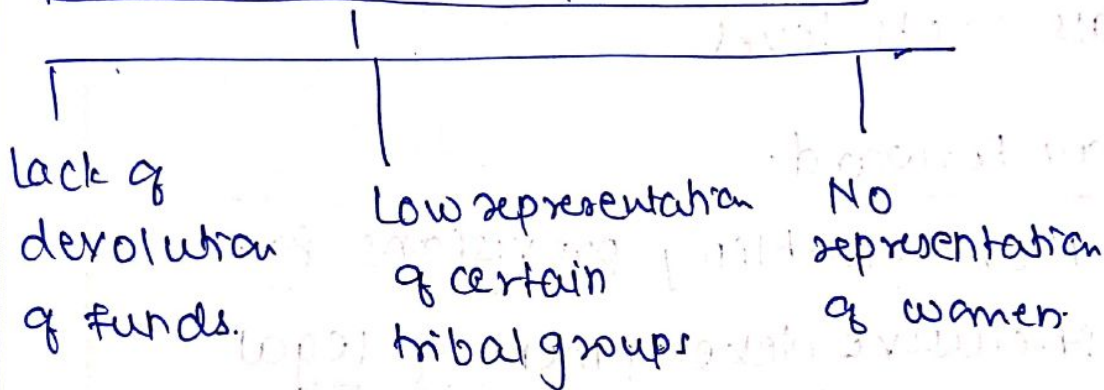 Lack of
devolution
of funds.
Low representation
of certain
tribal groups
No
representation
of women.